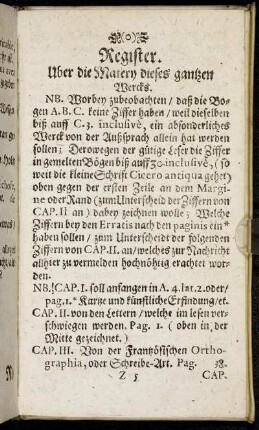 Register.
Uber die Matery dieses gantzen
Wercks.
NB. Worbey zubeobachten / daß die Bo-
gen A. B. C. keine Ziffer haben / weil dieselben
biß auff C. 3. inclusivè, ein absonderliches
Werck von der Außsprach allein hat werden
sollen; Derowegen der gütige Leser die Ziffer
in gemelten Bögen biß auff 30. inclusivè, (so
weit die kleine Schrifft Cicero antiqua gehet)
oben gegen der ersten Zeile an dem Margi-
ne oder Rand (zum Unterscheid der Ziffern von
CAP. II an) dabey zeichnen wolle; Welche
Ziffern bey den Erratis nach den paginis ein *
haben sollen / zum Unterscheid der folgenden
Ziffern von CAP. II. an / welches zur Nachricht
allhier zu vermelden hochnöhtig erachtet wor-
den.
NB. CAP. I. soll anfangen in A. 4. lat. 2. oder /
pag. 1. * Kurtze und künstliche Erfindung / et.
CAP. II. von den Lettern / welche im lesen ver-
schwiegen werden. Pag. 1. (oben in der
Mitte gezeichnet.)
CAP. III. Von der Frantzösischen Ortho-
graphia, oder Schreibe-Art. Pag. 38.
Z 5 CAP.